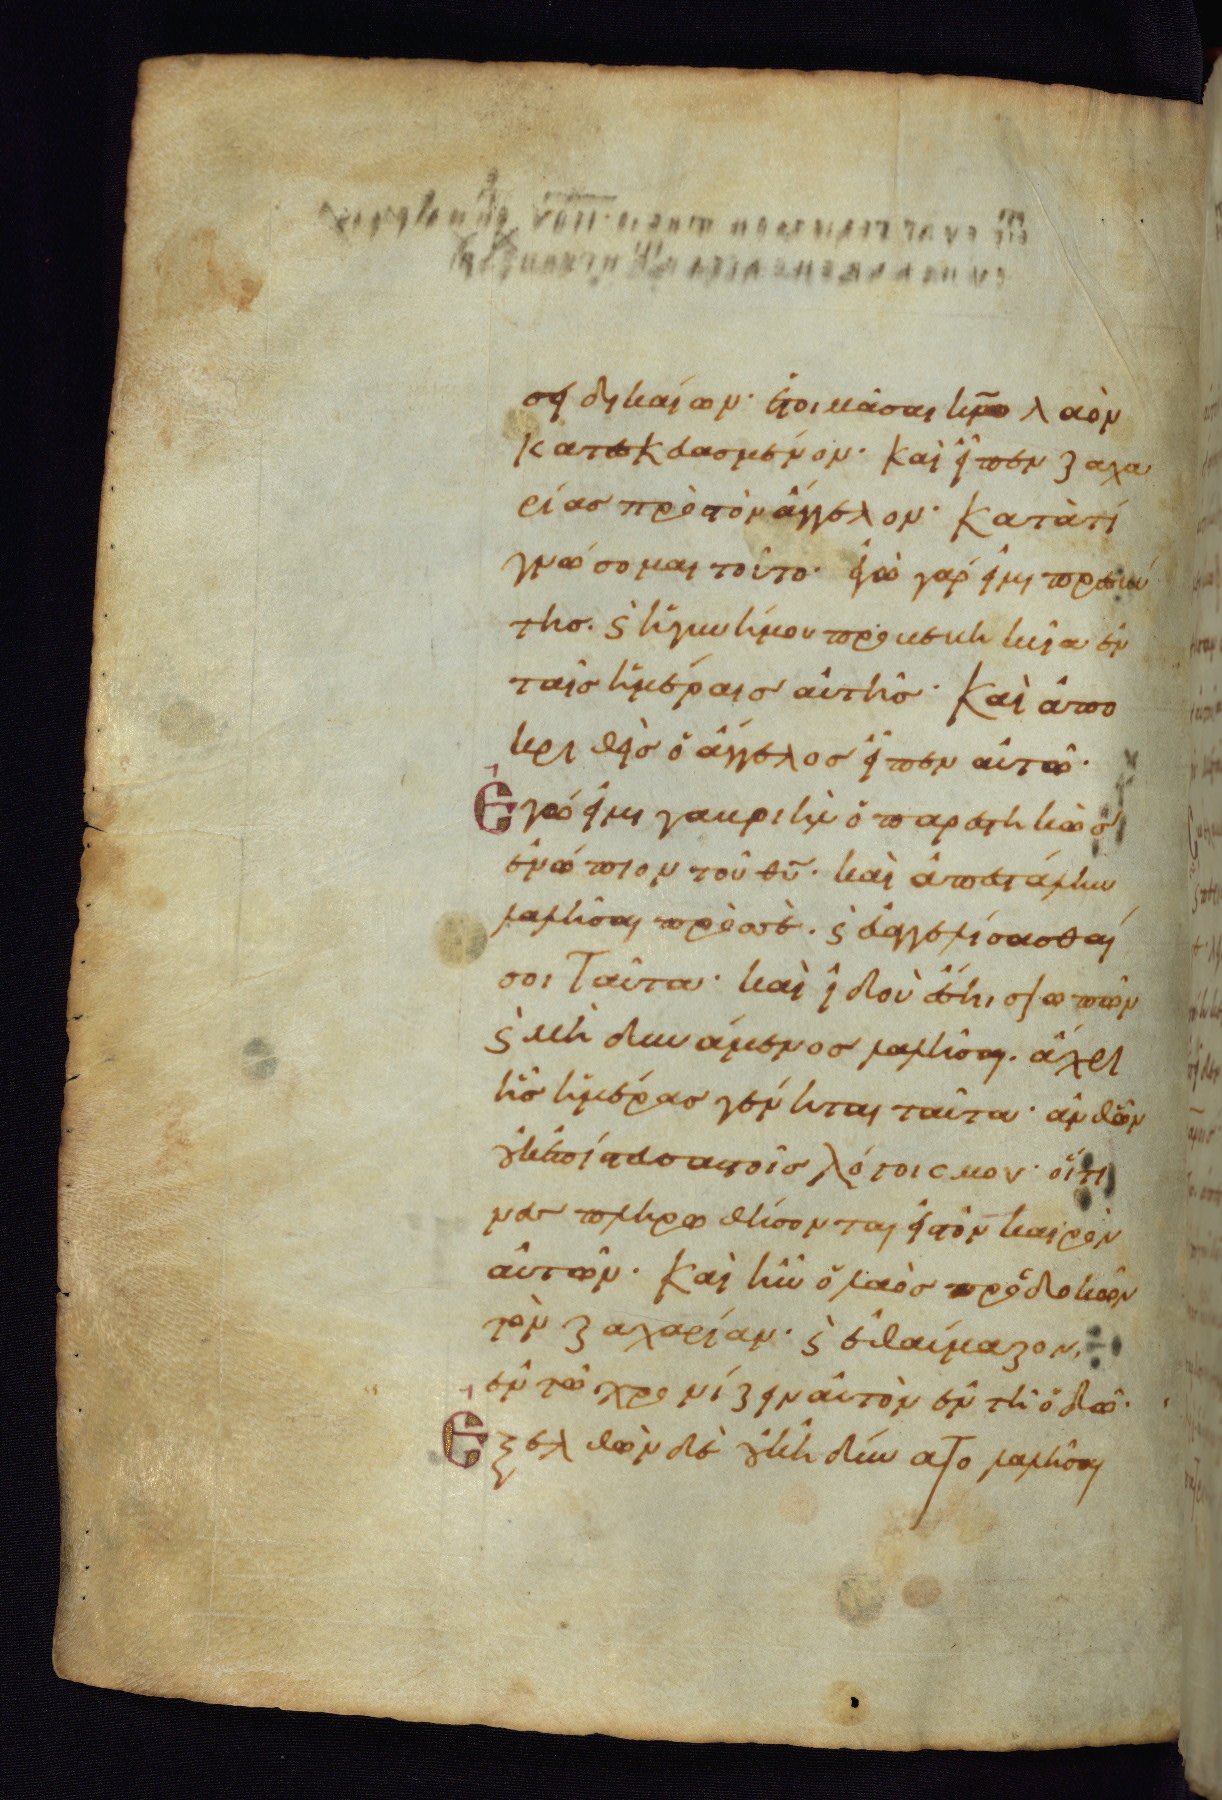 σει δικαίων· ἑτοιμάσαι κ̅ω̅ λαὸν
κατεσκευασμένον· καὶ εἶπεν ζαχα
ρίας πρὸς τὸν ἄγγελον· Κατὰ τί
γνώσομαι τοῦτο· ἐγὼ γάρ εἰμι πρεσβύ
της. ϗ ἡ γυνή μου προβεβηκυῖα ἐν
ταῖς ἡμέραις αὐτῆς· Καὶ ἀπο
κριθεὶς ὁ ἄγγελος εἶπεν αὐτῶ·
Ἐγώ εἰμι γαβριὴλ ὁ παρεστηκὼς
ἐνώπιον τοῦ θ̅υ̅· καὶ ἀπεστάλην
λαλῆσαι πρὸς σὲ. ϗ εὐαγγελίσασθαί
σοι ταῦτα· καὶ ἰδοὺ ἔση σιωπῶν
ϗ μὴ δυνάμενος λαλῆσαι. ἄχρι
ἧς ἡμέρας γένηται ταῦτα· ἀνθ ὧν
οὐκ ἐπίστευσας τοῖς λόγοις μου· οἵτι
νες πληρωθήσονται εἰς τὸν καιρὸν
αὐτῶν· Καὶ ἦν ὁ λαὸς προσδοκῶν
τὸν ζαχαρίαν· ϗ ἐθαύμαζον,
ἐν τῶ χρονίζειν αὐτὸν ἐν τῆ ὁδῶ·
Ἐξελθὼν δὲ οὐκ ἠδύνατο λαλῆσαι